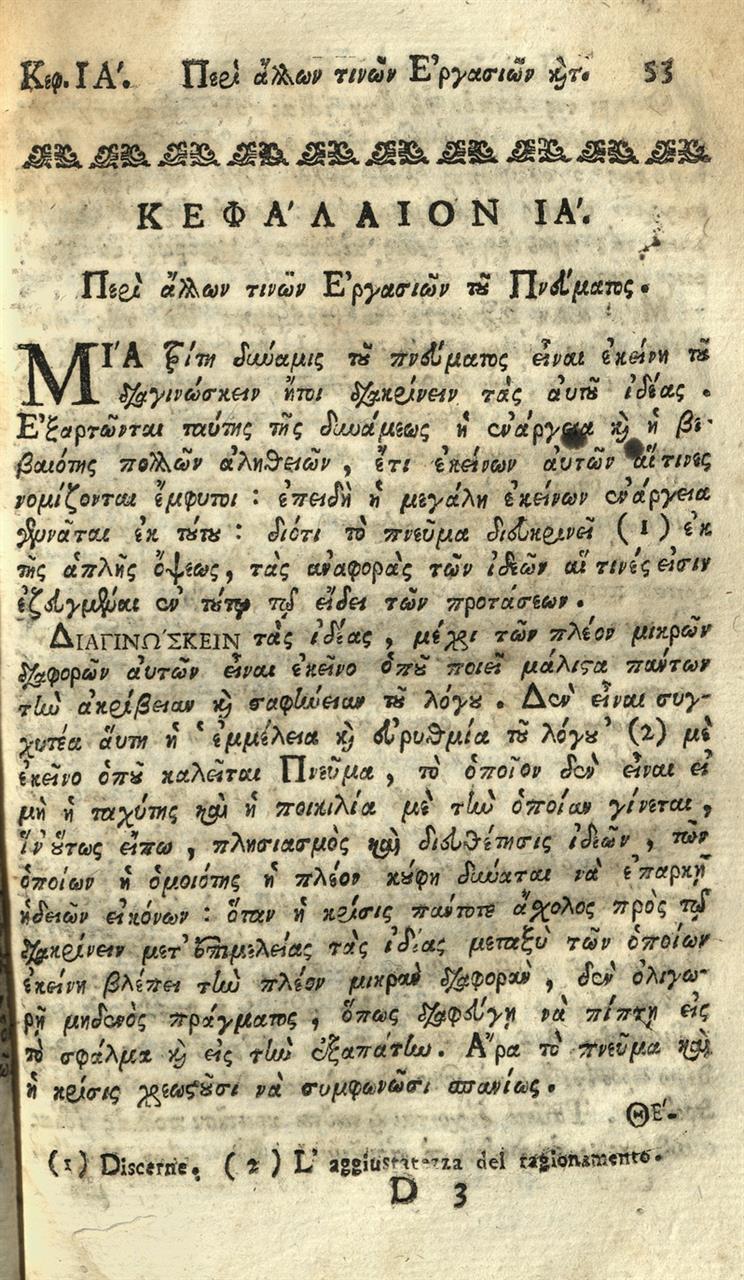 Κεφ. ΙΑ´. Περὶ ἄλλων τινῶν Ἐργασιῶν κ̀τ. 53
ΚΕΦΑ´ΛΑΙΟΝ ΙΑ´.
Περὶ ἄλλων τινῶν Ἐργασιῶν τοῦ Πνεύματος.
ΜΙ´Α τρίτη δύναμις τοῦ πνεύματος εἶναι ἐκείνη τοῦ
διαγινώσκειν ἤτοι διακρίνειν τὰς αὐτοῦ ἰδέας.
Ἐξαρτῶνται ταύτης τῆς δυνάμεως ἡ ἐνάργεια καὶ ἡ βε-
βαιότης πολλῶν ἀληθειῶν, ἔτι ἐκείνων αὐτῶν αἵ τινες
νομίζονται ἔμφυτοι: ἐπειδὴ ἡ μεγάλη ἐκείνων ἐνάργεια
γεννᾶται ἐκ τούτου: διότι τὸ πνεῦμα διευκρινεῖ (1) ἐκ
τῆς ἁπλῆς ὄψεως, τὰς ἀναφορὰς τῶν ἰδεῶν αἵ τινές εἰσιν
ἐζευγμέναι ἐν τούτῳ τῷ εἴδει τῶν προτάσεων.
ΔΙΑΓΙΝΩ´ΣΚΕΙΝ τὰς ἰδέας, μέχρι τῶν πλέον μικρῶν
διαφορῶν αὐτῶν εἶναι ἐκεῖνο ὁποῦ ποιεῖ μάλιστα πάντων
τὴν ἀκρίβειαν καὶ σαφήνειαν τοῦ λόγου. Δὲν εἶναι συγ-
χυτέα αὕτη ἡ ʽἐμμέλεια καὶ εὐρυθμία τοῦ λόγουʼ (2) μὲ
ἐκεῖνο ὁποῦ καλεῖται Πνεῦμα, τὸ ὁποῖον δὲν εἶναι εἰ
μὴ ἡ ταχύτης καὶ ἡ ποικιλία μὲ τὴν ὁποίαν γίνεται,
ἵν᾽ οὕτως εἴπω, πλησιασμὸς καὶ διευθέτησις ἰδεῶν, τῶν
ὁποίων ἡ ὁμοιότης ἡ πλέον κούφη δύναται νὰ ἐπαρκῇ
ἡδειῶν εἰκόνων: ὅταν ἡ κρίσις πάντοτε ἄσχολος πρὸς τῷ
διακρίνειν μετ᾽ ἐπιμελείας τὰς ἰδέας μεταξὺ τῶν ὁποίων
ἐκείνη βλέπει τὴν πλέον μικρὰν διαφορὰν, δὲν ὀλιγω-
ρῇ μηδενὸς πράγματος, ὅπως διαφεύγῃ νὰ πίπτῃ εἰς
τὸ σφάλμα καὶ εἰς τὴν ἐξαπάτην. Ἄρα τὸ πνεῦμα καὶ
ἡ κρίσις χρεωστοῦσι νὰ συμφωνῶσι σπανίως.
ΘΕ´-
(1) Discerne. (2) L' aggiustatezza del ragionamento.
D 3